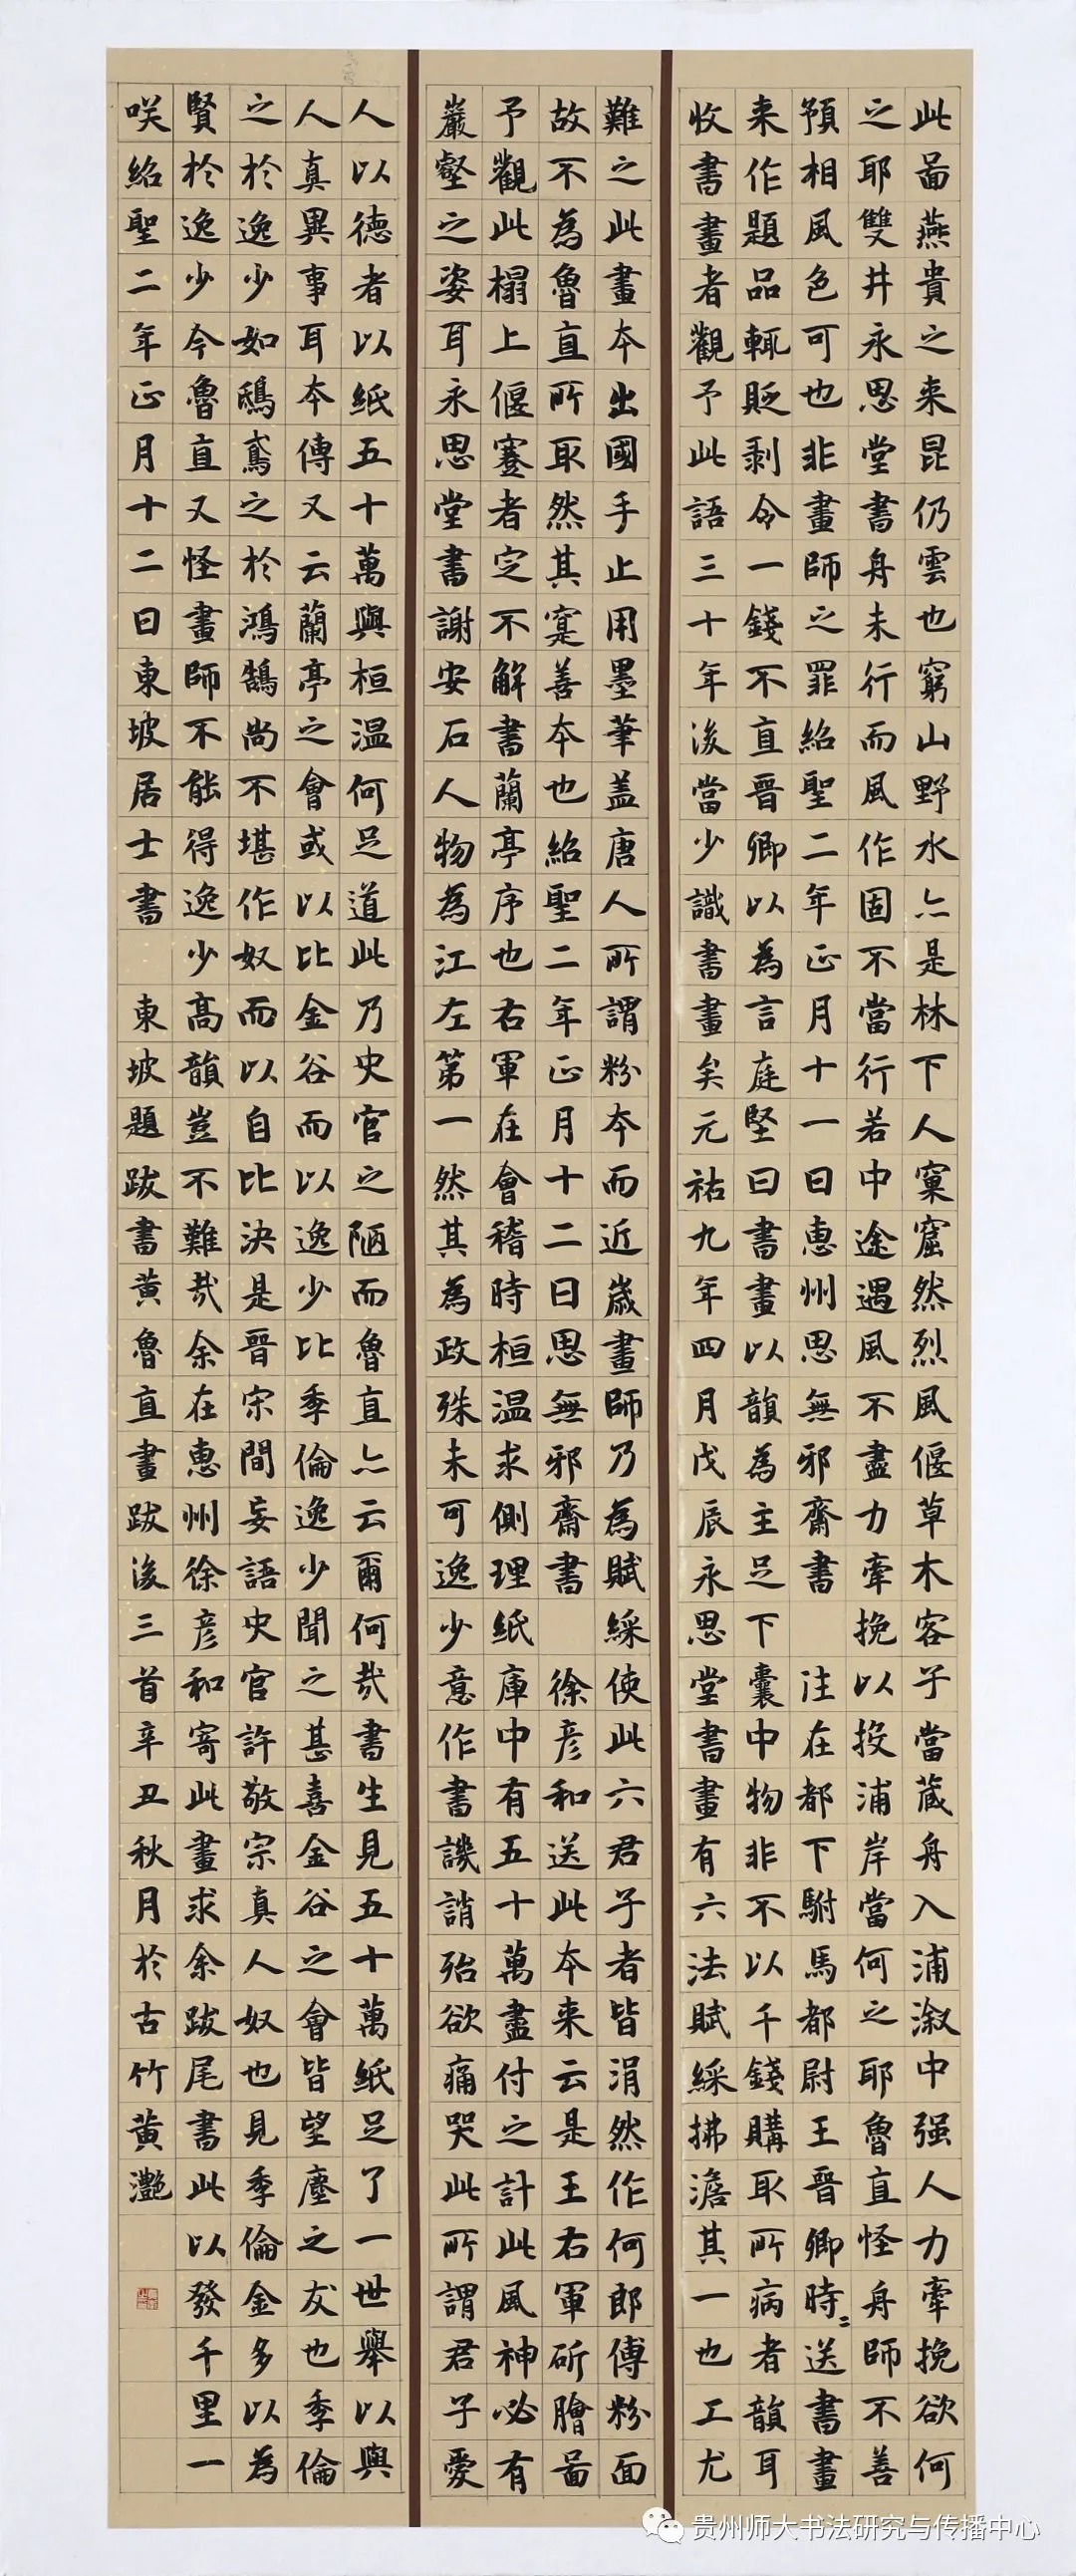 此啚燕貴之来昆仍雲也窮山野水亦是林下人窠窟然烈風偃草木客子當蔵舟入浦溆中强人力牽挽欲何
之耶雙井永思堂書舟未行而風作固不當行若中途遇風不盡力牽挽以投浦岸當何之耶魯直怪舟師不善
預相風色可也非畫師之罪紹聖二年正月十一日惠州思無邪齋書 注在都下駙馬都尉王晉卿時〻送書畫
来作題品輒貶剥令一錢不直晉卿以為言庭堅曰書畫以韻為主足下囊中物非不以千錢購取所病者韻耳
收書畫者觀予此語三十年後當少識書畫矣元祐九年四月戊辰永思堂書畫有六法賦綵拂澹其一也工尤
難之此畫本出國手止用墨筆盖唐人所謂粉本而近歲畫師乃為賦綵使此六君子者皆涓然作何郎傅粉面
故不為魯直所取然其寔善本也紹聖二年正月十二日思無邪齋書 徐彦和送此本来云是王右軍斫膾啚
予觀此榻上偃蹇者定不解書蘭亭序也右軍在會稽時桓温求側理紙庫中有五十萬盡付之計此風神必有
巖壑之姿耳永思堂書謝安石人物為江左第一然其為政殊未可逸少意作書譏誚殆欲痛哭此所謂君子愛
人以德者以紙五十萬與桓温何足道此乃史官之陋而魯直亦云爾何哉書生見五十萬紙足了一世舉以與
人真異事耳本傳又云蘭亭之會或以比金谷而以逸少比季倫逸少聞之甚喜金谷之會皆望塵之友也季倫
之於逸少如鴟鳶之於鴻鵠尚不堪作奴而以自比決是晉宋間妄語史官許敬宗真人奴也見季倫金多以為
賢於逸少今魯直又怪畫師不能得逸少高韻豈不難哉余在惠州徐彦和寄此畫求余跋尾書此以發千里一
咲紹聖二年正月十二日東坡居士書 東坡題跋書黄魯直畫跋後三首辛丑秋月於古竹黄灔
贵州师大书法研究与传播中心